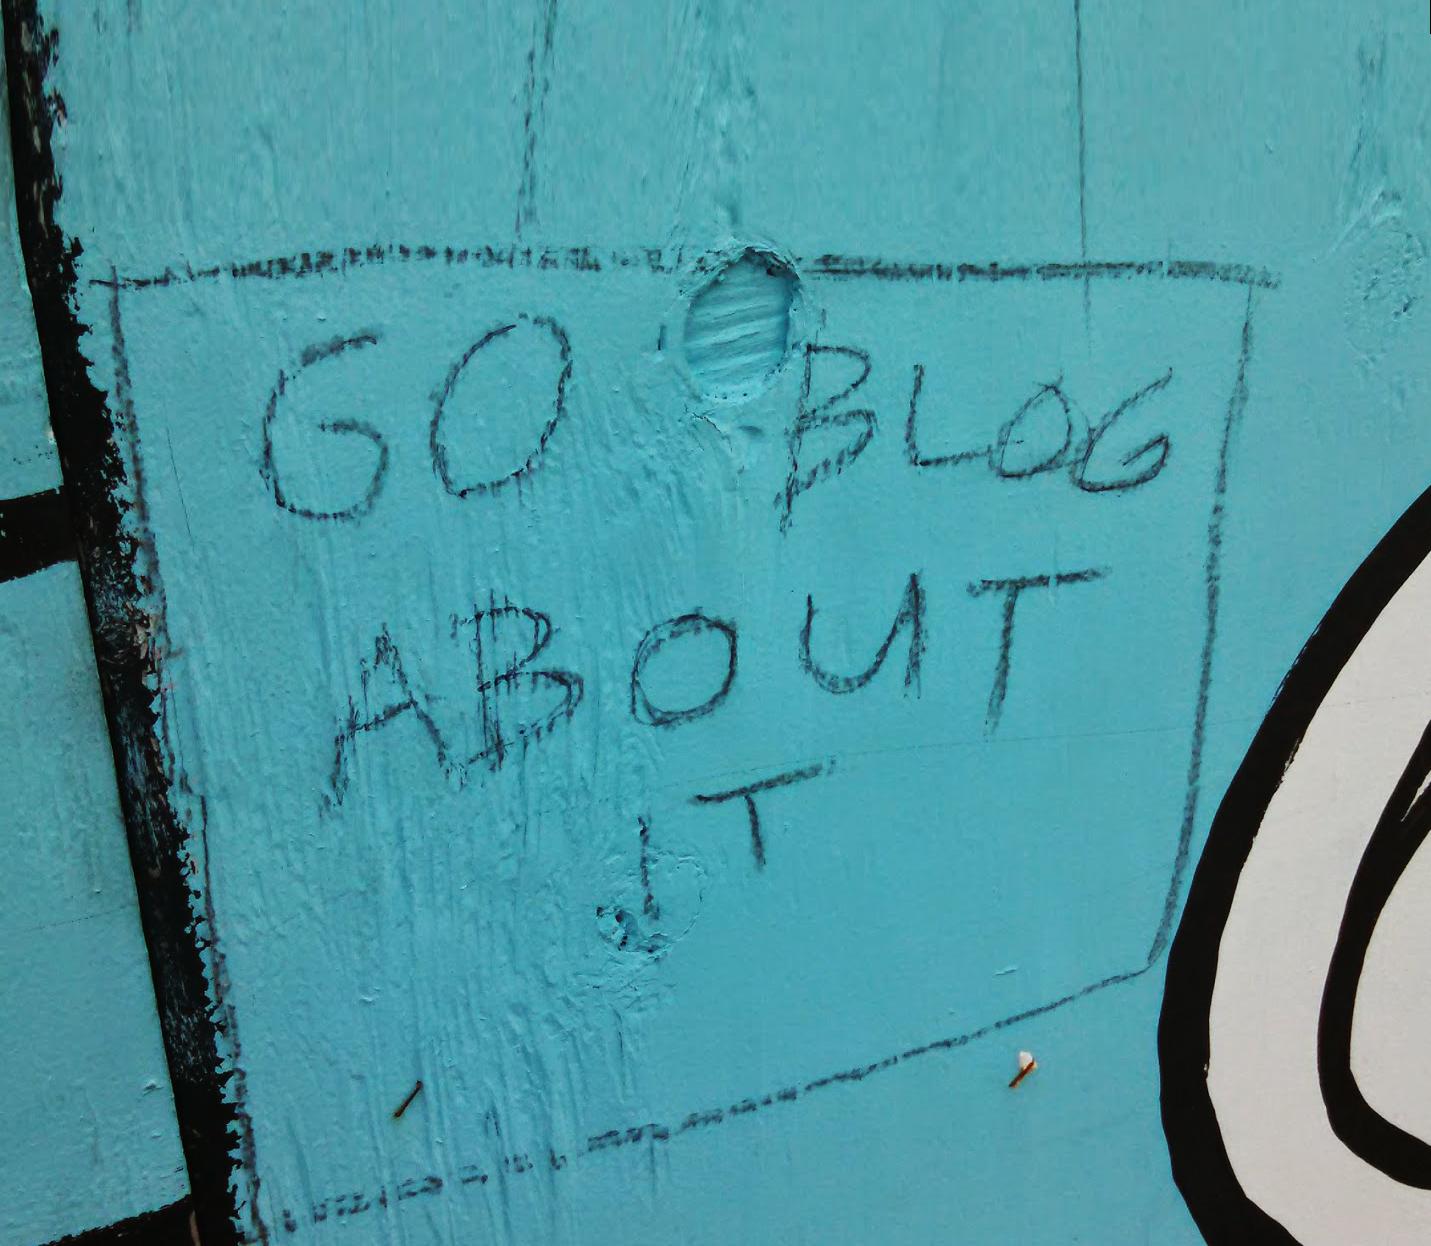 GO BLOG
ABOUT
IT